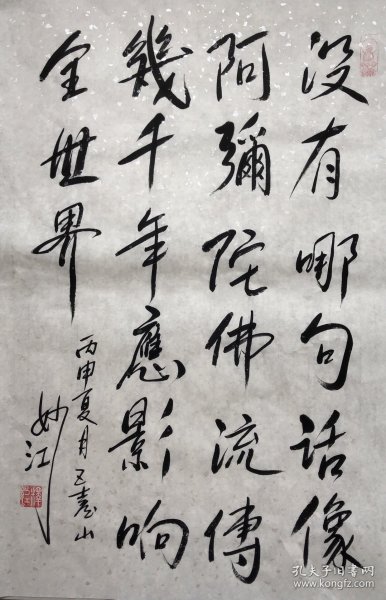 没有哪句话像
阿彌陀佛流傳
幾千年應影响
全世界
丙申夏月五臺山
妙江
孔夫子旧书网
www.kongfz.com